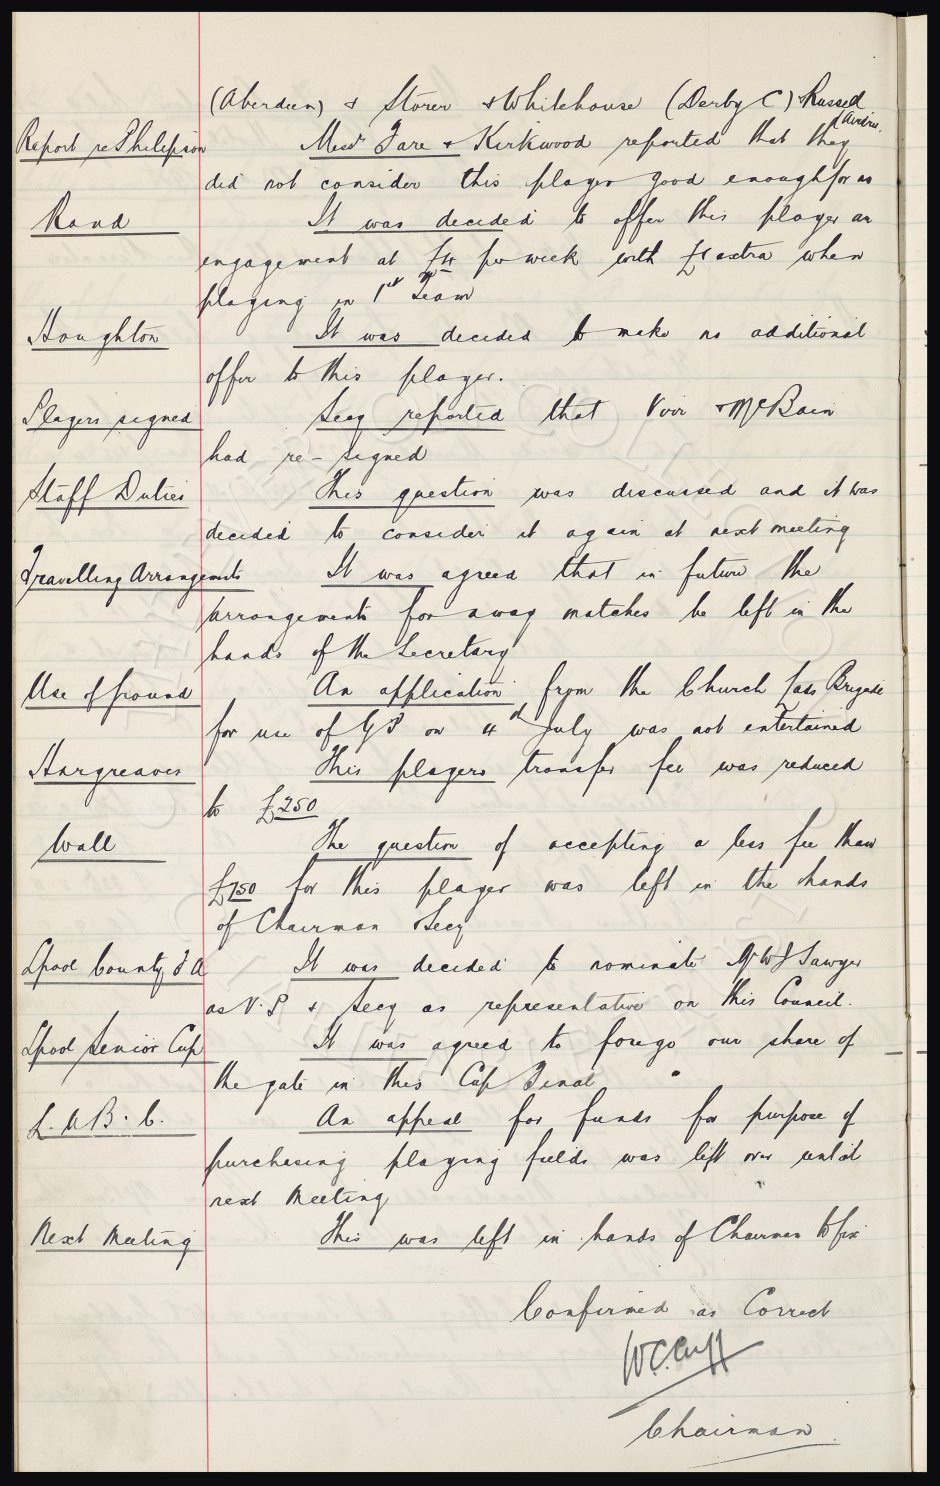 (Aberdeen) & Storer & Whitehouse (Derby C) & Russell
(Airdrie.
Report re Philipson Messrs Fare & Kirkwood reported that they
did not consider this player good enough for us
Rand It was decided to offer this player an
engagement at £4 per week with £1 extra when
playing in 1st Team
Houghton It was decided to make no additional
offer to this player.
Players signed Secy reported that Virr & McBain
had re-signed
Staff Duties This question was discussed and it was
decided to consider it again at next meeting
Travelling Arrangements It was agreed that in future the
arrangements for away matches be left in the
hands of the Secretary
Use of ground An application from the Church Lads Brigade
for use of GP on 4th July was not entertained
Hargreaves This players transfer fee was reduced
to £250
Wall The question of accepting a less fee than
£750 for this player was left in the hands
of Chairman & Secy
Lpool County F A It was decided to nominate Mr W J Sawyer
as V.P & Secy as representative on this Council.
Lpool Senior Cup It was agreed to forego our share of
the gate in this Cup Final
L. U B. C. An appeal for funds for purpose of
purchasing playing fields was left over until
next meeting
Next Meeting This was left in hands of Chairman to fix
Confirmed as Correct
W.C. Cuff
Chairman